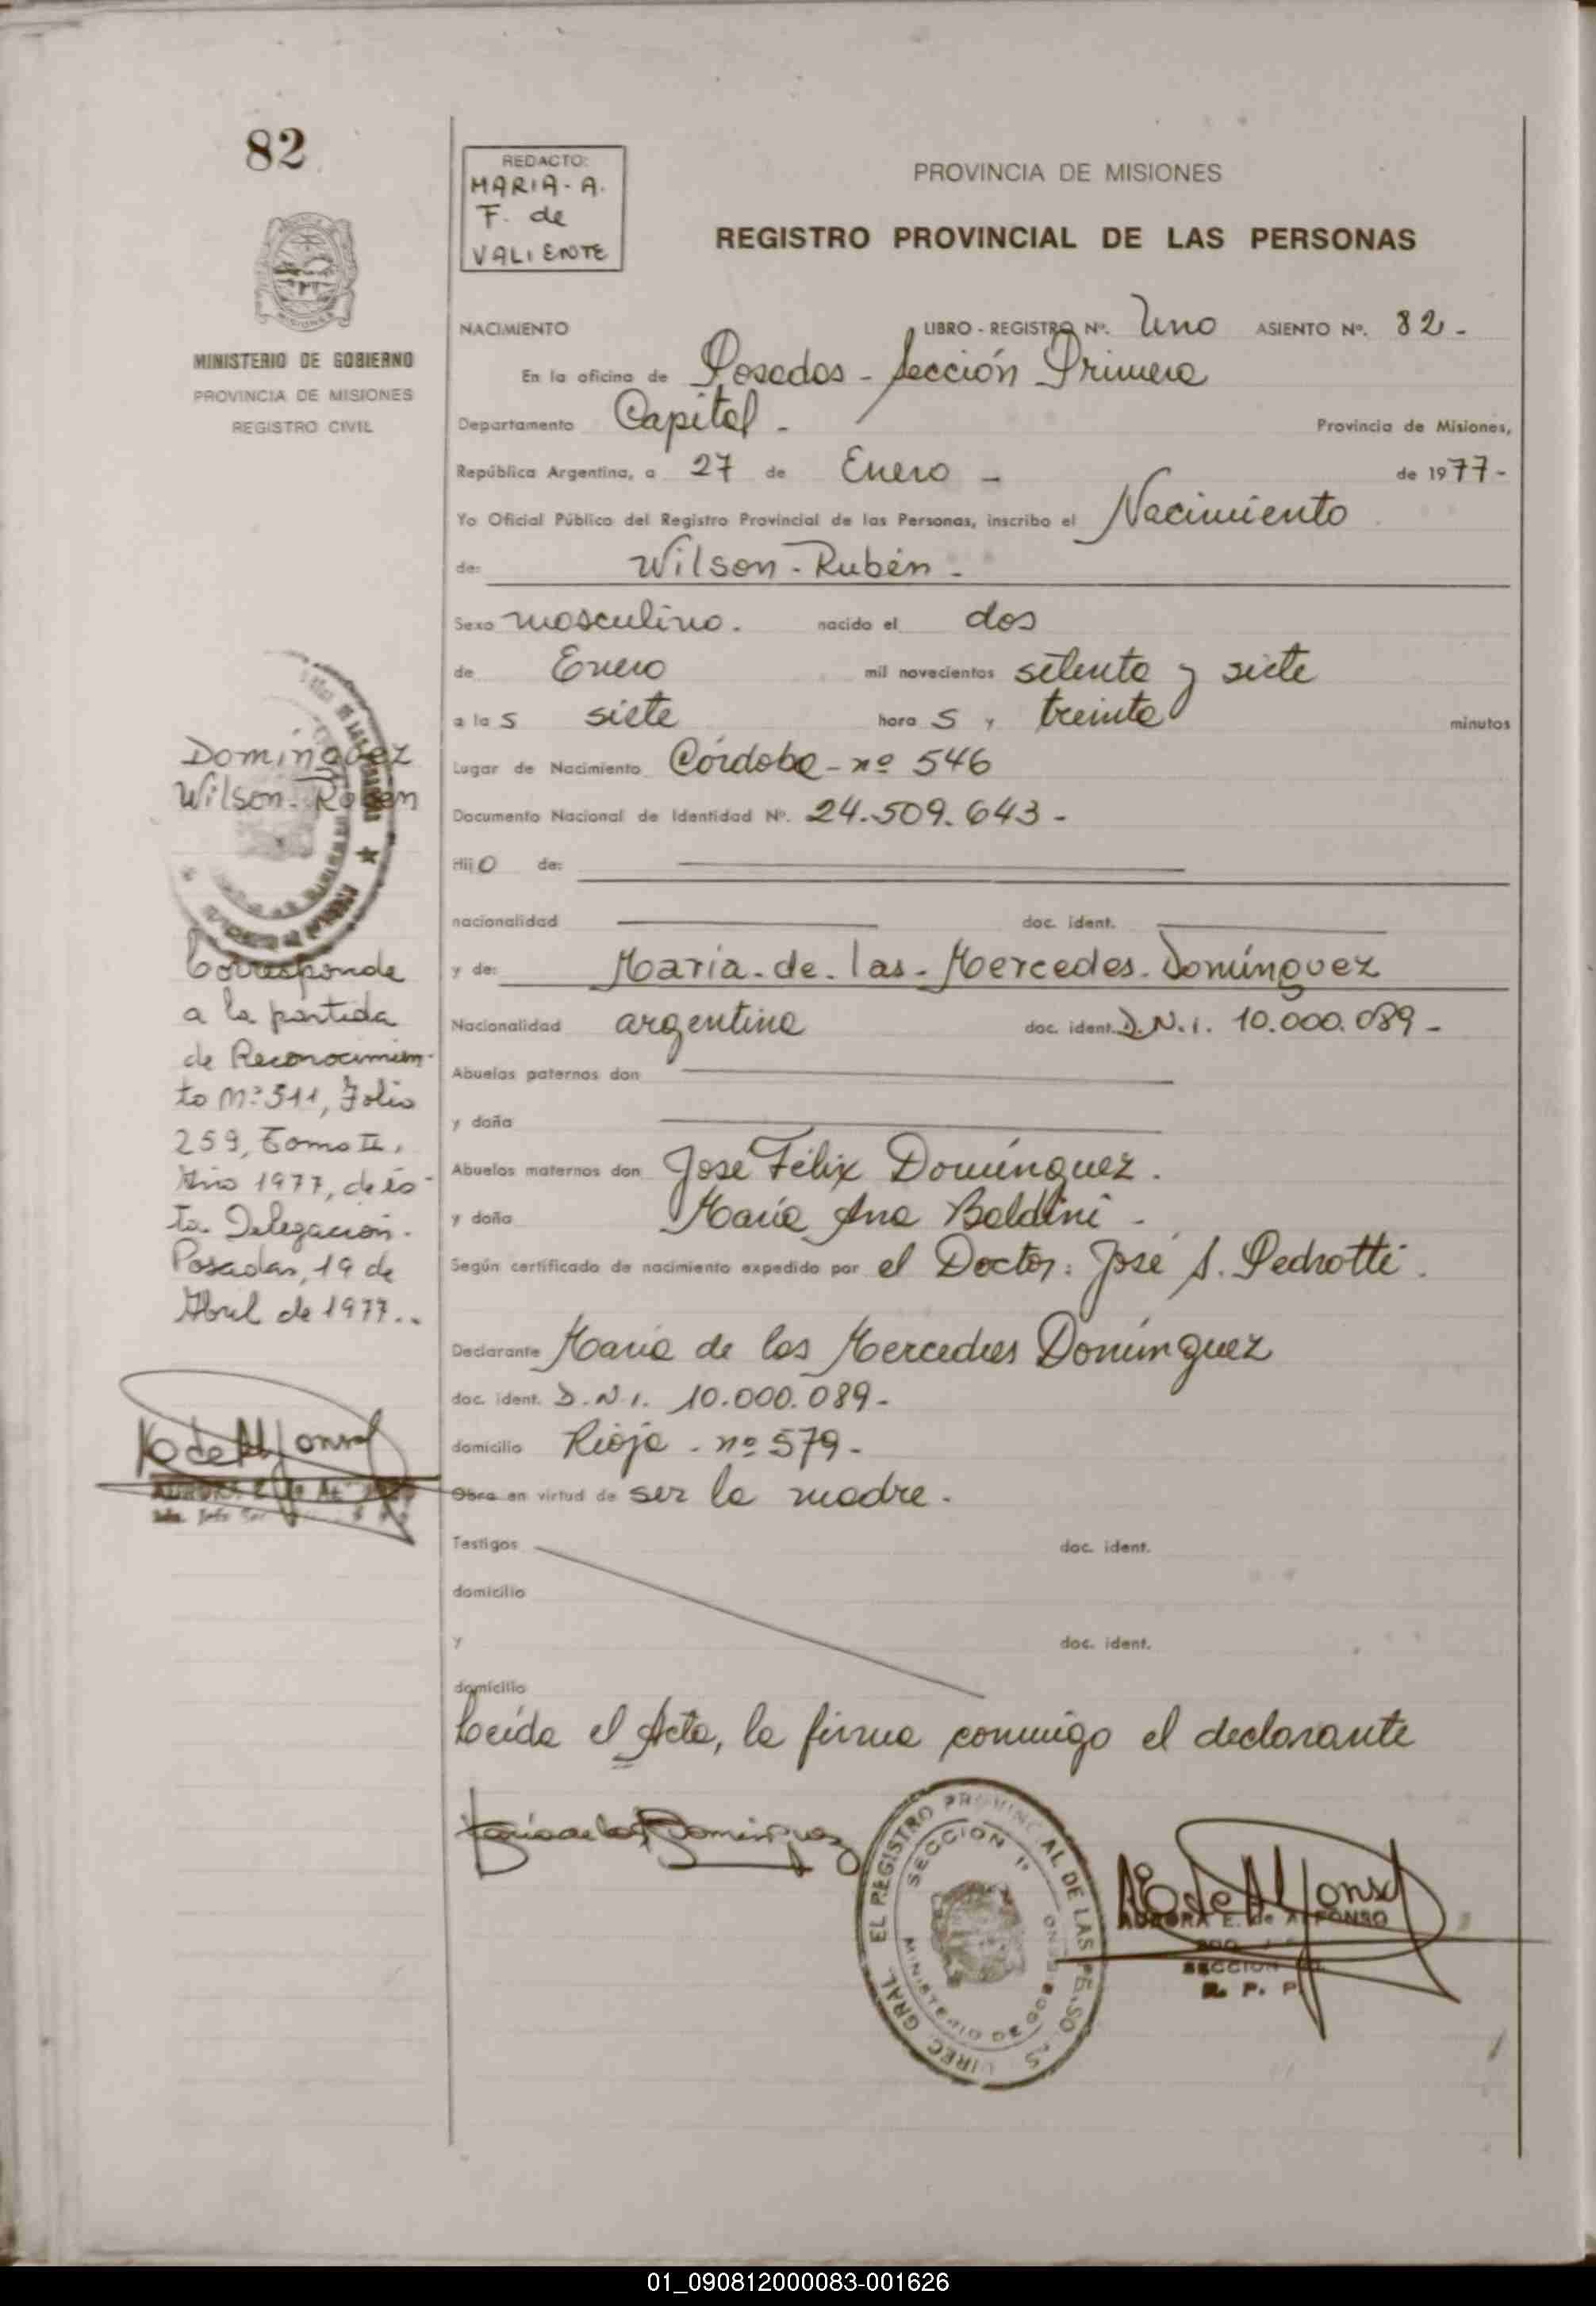 82
MINISTERIO DE GOBIERNO
PROVINCIA DE MISIONES
REGISTRO CIVIL
REDACTO:
MARIA - A.
F. de
VALIENTE
PROVINCIA DE MISIONES
REGISTRO PROVINCIAL DE LAS PERSONAS
NACIMIENTO LIBRO - REGISTRO Nº. Uno ASIENTO Nº. 82 -
En la oficina de Posadas - Sección Primera
Departamento Capital - Provincia de Misiones,
República Argentina, a 27 de Enero - de 1977 -
Yo Oficial Público del Registro Provincial de las Personas, inscribo el Nacimiento
de: Wilson - Rubén -
Sexo masculino. nacido el dos
de Enero mil novecientos setenta y siete
a las siete horas y treinta minutos
Lugar de Nacimiento Córdoba - nº 546
Documento Nacional de Identidad Nº. 24.509.643 -
Hijo de:
nacionalidad doc. ident.
y de: María - de - las - Mercedes - Domínguez
Nacionalidad argentina doc. ident. D.N.i. 10.000.089 -
Abuelos paternos don
y doña
Abuelos maternos don José Félix Domínguez.
y doña María Ana Baldini -
Según certificado de nacimiento expedido por el Doctor: José S. Pedrotti.
Declarante María de las Mercedes Domínguez
doc. ident. D.N.i. 10.000.089 -
domicilio Rioja - nº 579 -
Obra en virtud de ser la madre.
Testigos doc. ident.
domicilio
y doc. ident.
domicilio
Leída el Acta, la firma conmigo el declarante
Domínguez
Wilson - Rubén
Corresponde
a la partida
de Reconocimien-
to Nº 511, Folio
259, Tomo II,
Año 1977, de és-
ta Delegación.
Posadas, 19 de
Abril de 1977..
DIREC. GRAL. EL REGISTRO PROVINCIAL DE LAS PERSONAS
SECCION 1ª
MINISTERIO DE GOBIERNO
AURORA E. de ALFONSO
SECCION
R. P. P.
01_090812000083-001626